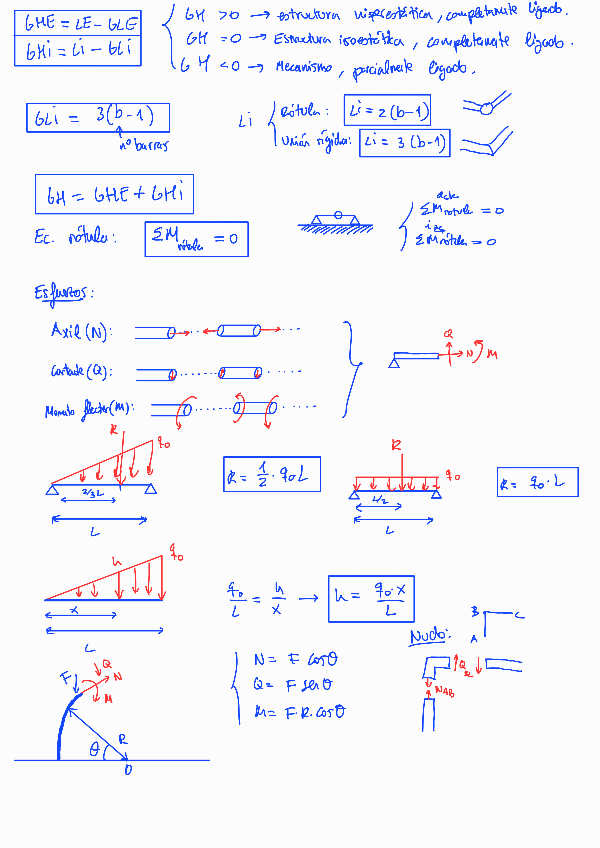 GHE = LE - GLE
GHi = Li - GLi
GH > 0 → estructura hiperestática, completamente ligado.
GH = 0 → Estructura isoestática, completamente ligado.
GH < 0 → Mecanismo, parcialmente ligado.
GLi = 3(b-1)
nº barras
Li
Rótula: Li = 2(b-1)
Unión rígida: Li = 3(b-1)
GH = GHE + GHi
Ec. rótula: ΣM rótula = 0
dcha
ΣM rotula = 0
izq
ΣM rótula = 0
Esfuerzos:
Axil (N):
Cortante (Q):
Momento flector (M):
Q
N
M
R
q₀
2/3 L
L
R = 1/2 · q₀ L
R
q₀
L/2
L
R = q₀ · L
h
q₀
x
L
q₀/L = h/x → h = q₀·x/L
Nudo:
B
C
A
Q
N AB
F
Q
N
M
R
θ
O
N = F cosθ
Q = F senθ
M = F·R·cosθ